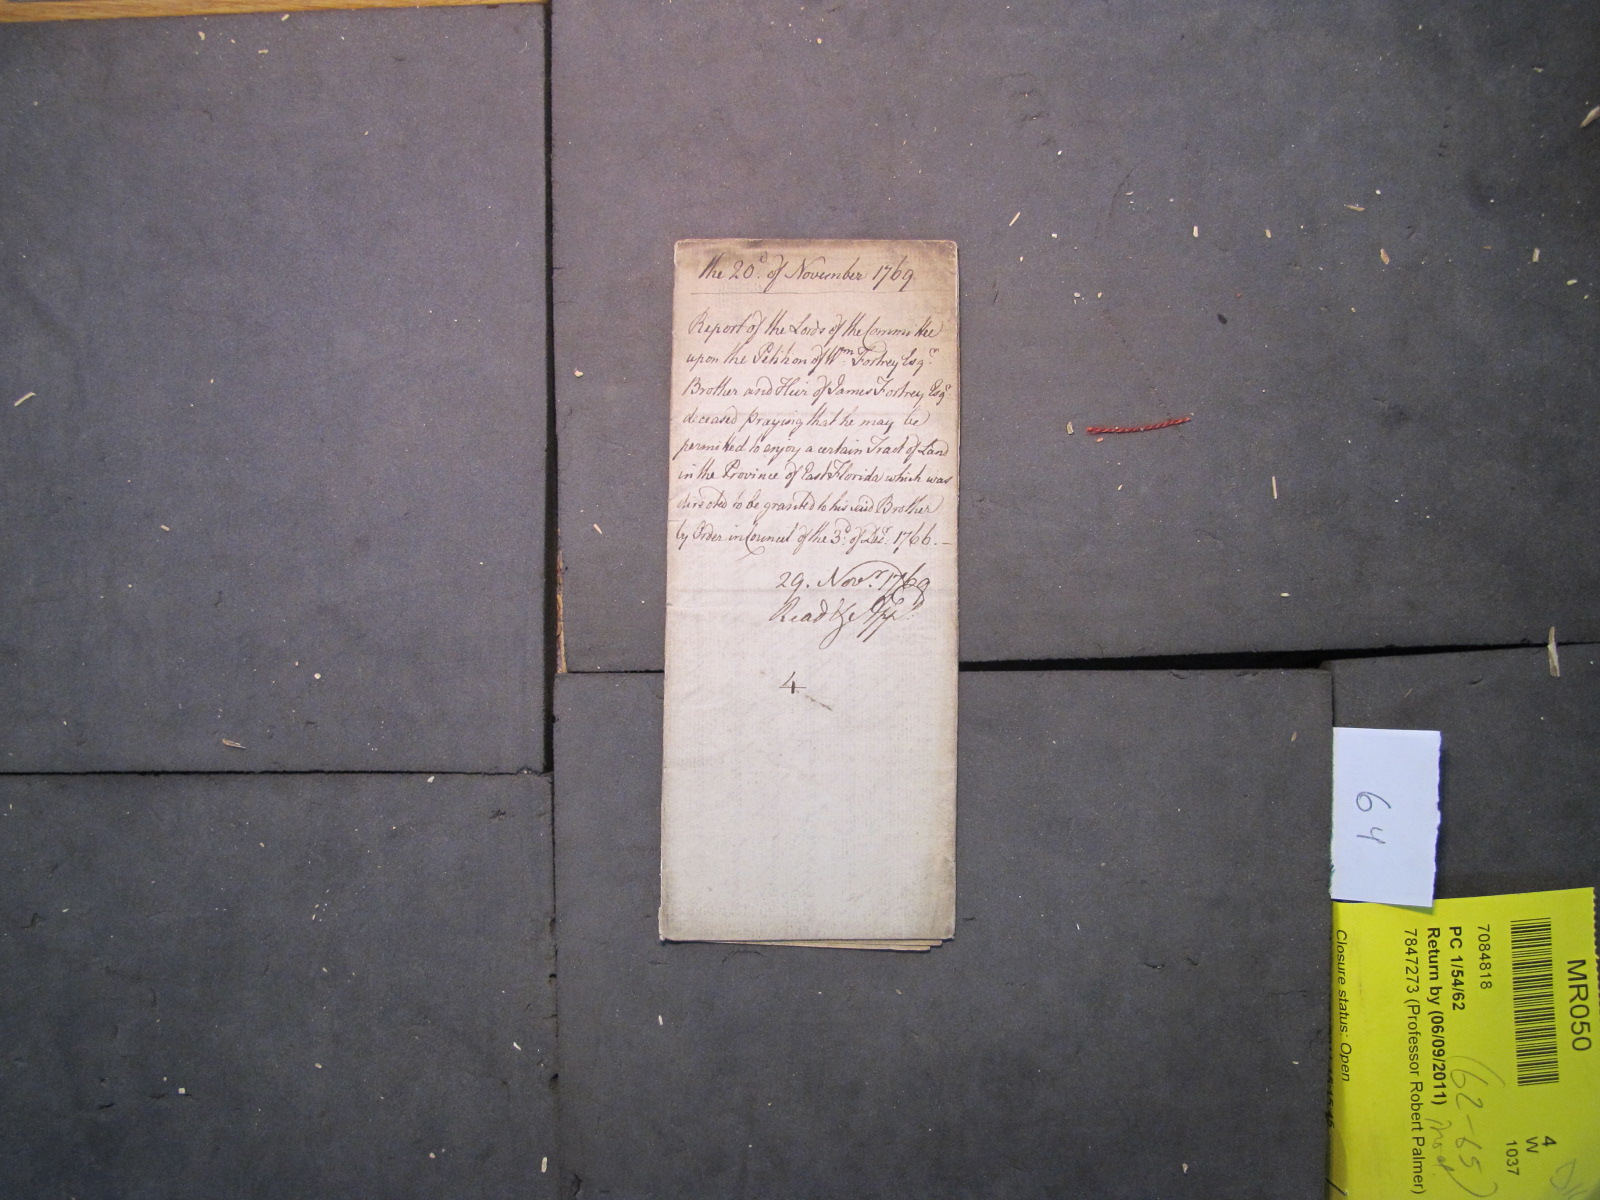 the 20th. of November 1769
Report of the Lords of the Committee
upon the Petition of Wm. Fortrey Esqr.
Brother and Heir of James Fortrey Esqr.
deceased praying that he may be
permitted to enjoy a certain Tract of Land
in the Province of East Florida which was
directed to be granted to his said Brother
by Order in Council of the 3d. of Decr. 1766. —
29. Novr. 1769
Read & App
4
64
MR050
7084818
PC 1/54/62
Return by (06/09/2011)
7847273 (Professor Robert Palmer)
Closure status: Open
(62-65)
4
W
1037